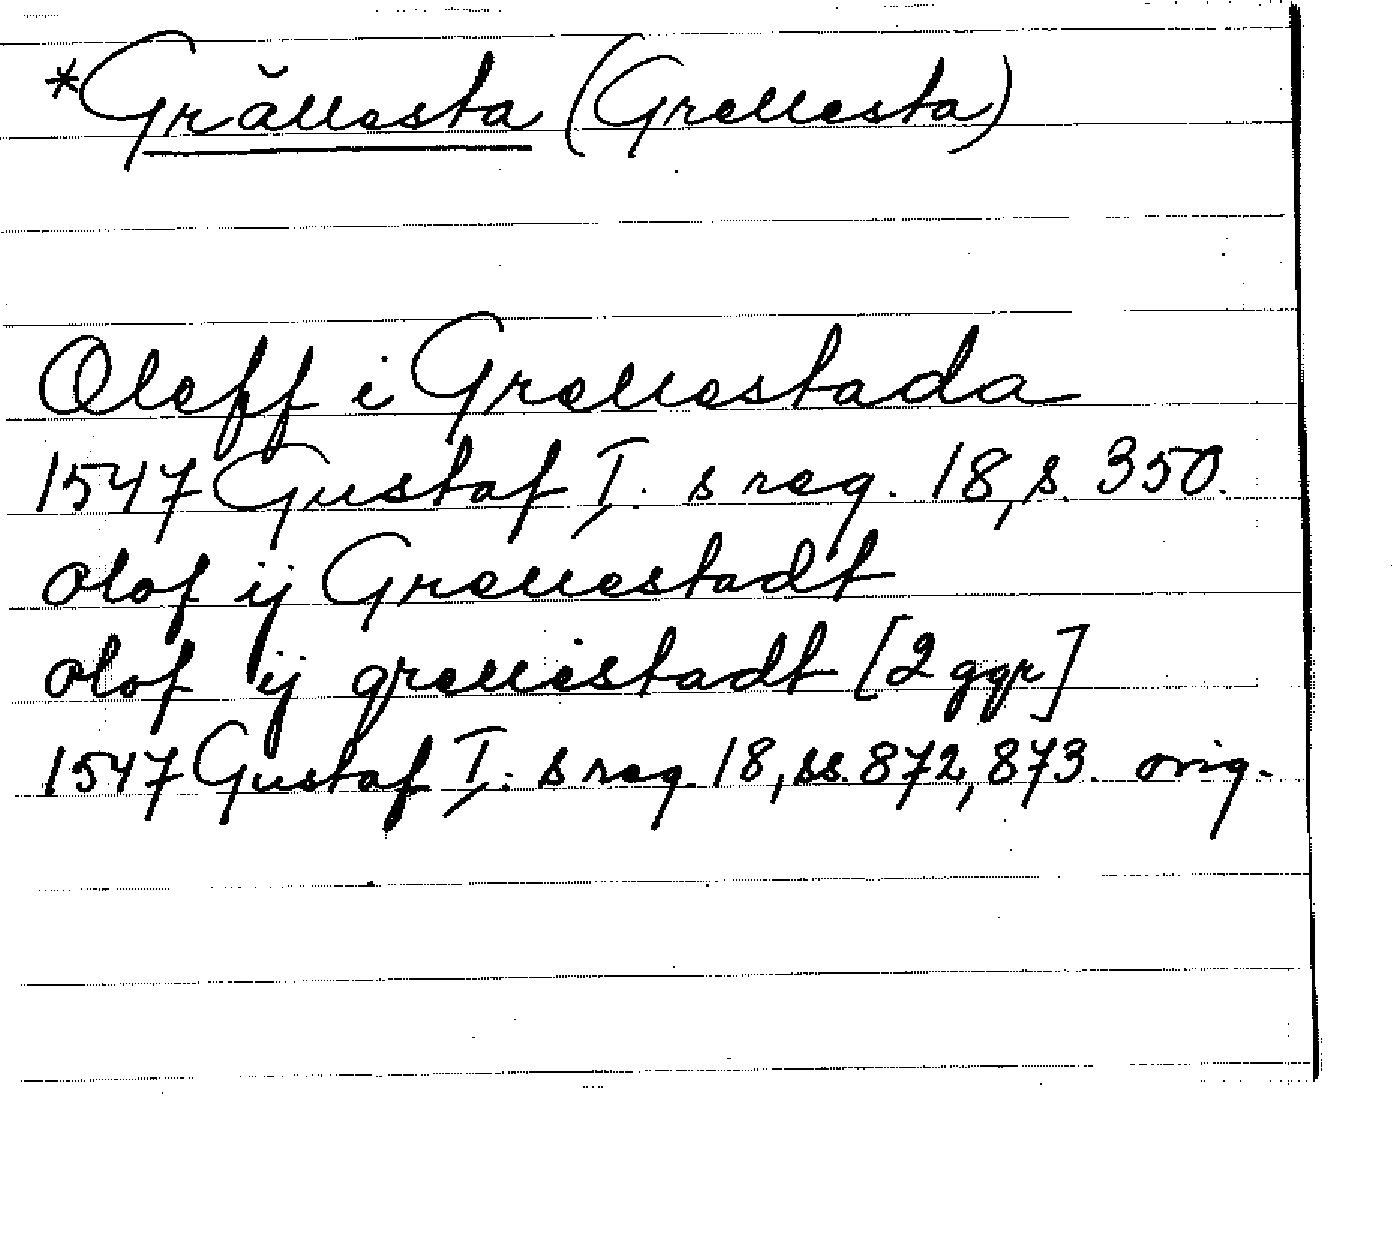 *Grällesta (Grellesta)
Oleff i Grellestada
1547 Gustaf I:s reg. 18, s. 350.
Olof ij Grellestadt
Olof ij grellistadt [2 ggr]
1547 Gustaf I:s reg. 18, ss. 872, 873. orig.